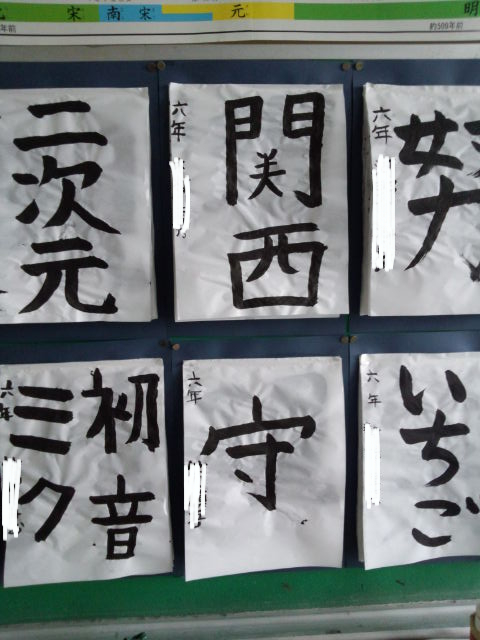 宋 南宋 元 明
年前
二次元
六年
関西
六年
努
六年
初音
ミク
六年
守
六年
いちご